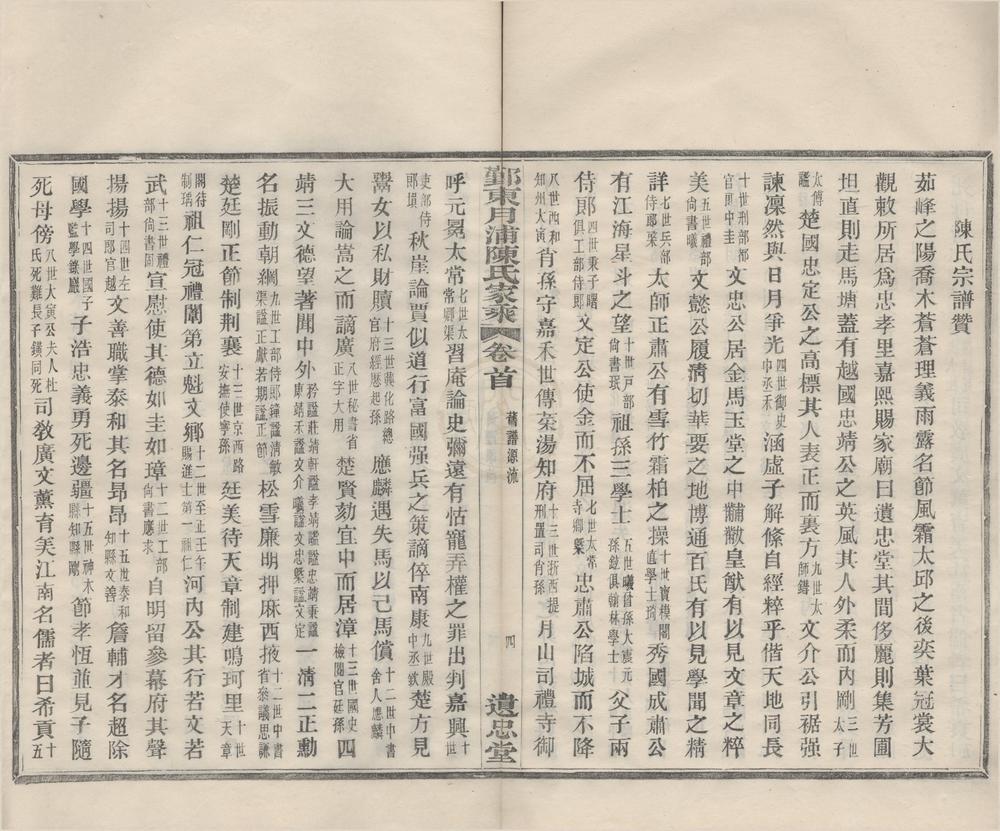 陳氏宗譜贊
茹峰之陽喬木蒼蒼理義雨露名節風霜太邱之後奕葉冠裳大
觀敕所居爲忠孝里嘉熙賜家廟曰遺忠堂其間侈麗則集芳圃
坦直則走馬塘蓋有越國忠靖公之英風其人外柔而內剛三世太子
太傅謚楚國忠定公之高標其人表正而裏方九世太師鍇文介公引裾强
諫凜然與日月爭光四世御史中丞禾涵虛子解絛自經粹乎偕天地同長
十世刑部郎官兩中圭文忠公居金馬玉堂之中黼黻皇猷有以見文章之粹
美五世禮部尚書曦文懿公履淸切華要之地博通百氏有以見學聞之精
詳七世兵部侍郎棐太師正肅公有雪竹霜柏之操十世寶樸閣直學士琦秀國成肅公
有江海星斗之望十世戸部尚書珉祖孫三學士五世曦曾孫大震元孫鉉俱翰林學士父子兩
侍郎四世秉子曙俱工部侍郎文定公使金而不屈七世太常寺卿槩忠肅公陷城而不降
八世西和知州大寅肖孫守嘉禾世傳棻湯知府十三世浙西提刑置司肖孫月山司禮寺御
鄞東月浦陳氏家乘 卷首 舊譜源流 四 遺忠堂
呼元晜太常七世太常卿渠習庵論史彌遠有怙寵弄權之罪出判嘉興十世
吏部侍郎塤秋崖論賈似道行富國强兵之策謫倅南康九世殿中丞欽楚方見
鬻女以私財贖十三世蘄化路總官府經歷起孫應麟遇失馬以己馬償十二世中書舍人應麟
大用論嵩之而謫廣八世秘書省正字大用楚賢劾宜中而居漳十三世國史檢閲官廷孫四
靖三文德望著聞中外矜謚莊靖軒謚孝靖謐謚忠靖秉謚康靖禾謚文介曦謚文忠槩謚文定一淸二正勳
名振動朝綱九世工部侍郎鐘謚清敏渠謚正獻若期謚正節松雪廉明押麻西掖十二世中書省叅議思謙
楚廷剛正節制荆襄十三世京西路安撫使寧孫廷美待天章制建鳴珂里十世天章
閣待制瑀祖仁冠禮闈第立魁文鄉十二世至正壬午賜進士第一祖仁河內公其行若文若
武十三世禮部尚書固宣慰使其德如圭如璋十二世工部尚書應求自明留參幕府其聲
揚揚十四世左司郎官越文善職掌泰和其名昂昂十五世泰和知縣文善詹輔才名超除
國學十四世國子監學錄巖子浩忠義勇死邊疆十五世神木縣知縣剛節孝恆並見子隨
死母傍八世大寅夫人杜氏死難長子鐄同死司敎廣文薰育美江南名儒者曰希貢十五